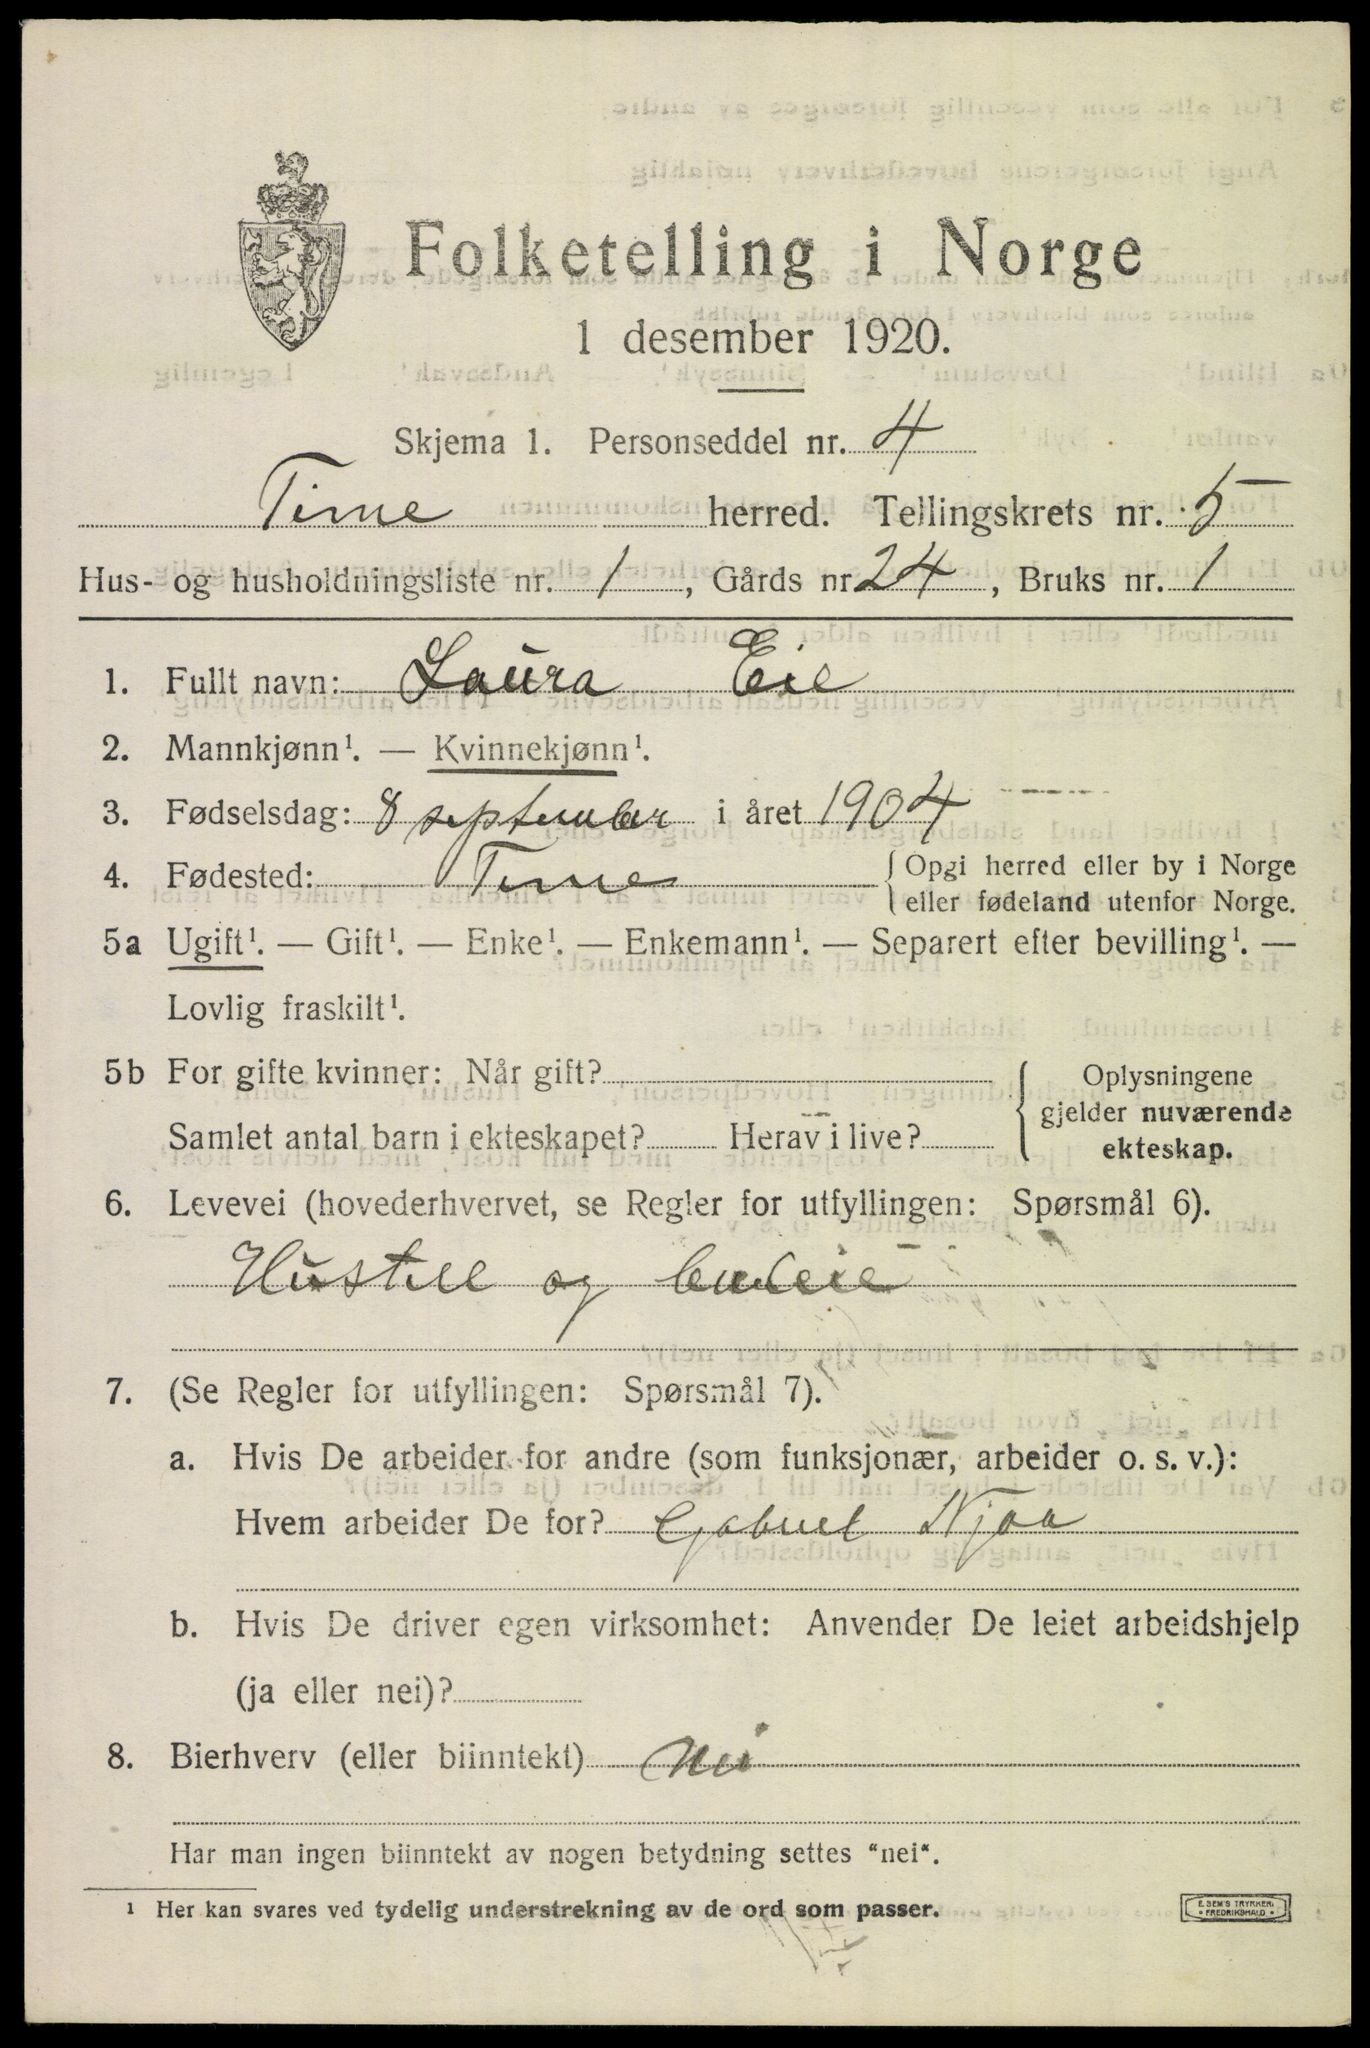 Folketelling i Norge
1 desember 1920.
Skjema 1. Personseddel nr. 4
Time herred. Tellingskrets nr. 5
Hus- og husholdningsliste nr. 1, Gårds nr 24, Bruks nr. 1
1. Fullt navn: Laura Eie
2. Mannkjønn¹. — Kvinnekjønn¹.
3. Fødselsdag: 8 september i året 1904
4. Fødested: Time { Opgi herred eller by i Norge
eller fødeland utenfor Norge.
5a Ugift¹. — Gift¹. — Enke¹. — Enkemann¹. — Separert efter bevilling¹. —
Lovlig fraskilt¹.
5b For gifte kvinner: Når gift?
Samlet antal barn i ekteskapet? Herav i live?
{ Oplysningene
gjelder nuværende
ekteskap.
6. Levevei (hovederhvervet, se Regler for utfyllingen: Spørsmål 6).
Hustell og
7. (Se Regler for utfyllingen: Spørsmål 7).
a. Hvis De arbeider for andre (som funksjonær, arbeider o. s. v.):
Hvem arbeider De for? Gabriel Njaa
b. Hvis De driver egen virksomhet: Anvender De leiet arbeidshjelp
(ja eller nei)?
8. Bierhverv (eller biinntekt) Nei
Har man ingen biinntekt av nogen betydning settes "nei".
¹ Her kan svares ved tydelig understrekning av de ord som passer.
E. SEM'S TRYKKERI
• FREDRIKSHALD •